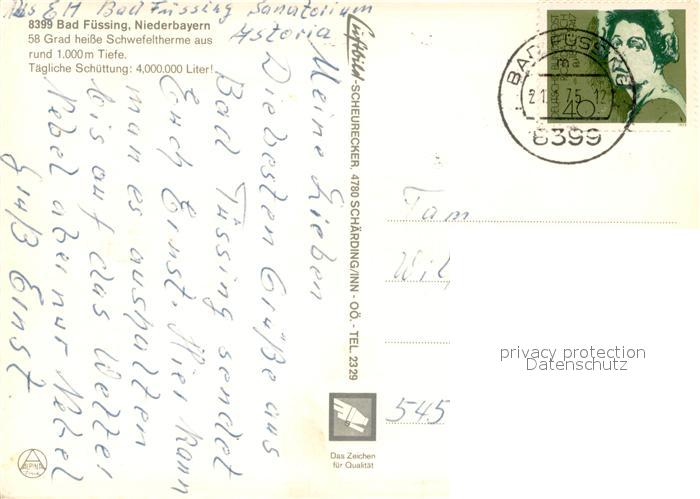 8399 Bad Füssing, Niederbayern
58 Grad heiße Schwefeltherme aus
rund 1.000 m Tiefe.
Tägliche Schüttung: 4,000.000 Liter!
Bad Füssing Sanatorium
Astoria
Meine Lieben
Die besten Grüße aus
Bad Füssing sendet
Euch Ernst. Hier kann
man es aushalten
bis auf das Wetter
Nebel aber nur Nebel
Gruß Ernst
Luftbild-SCHEURECKER, 4780 SCHÄRDING/INN - OÖ. - TEL. 2329
Das Zeichen
für Qualität
BAD FÜSSING
8399
40
Fam
Wil
545
privacy protection
Datenschutz